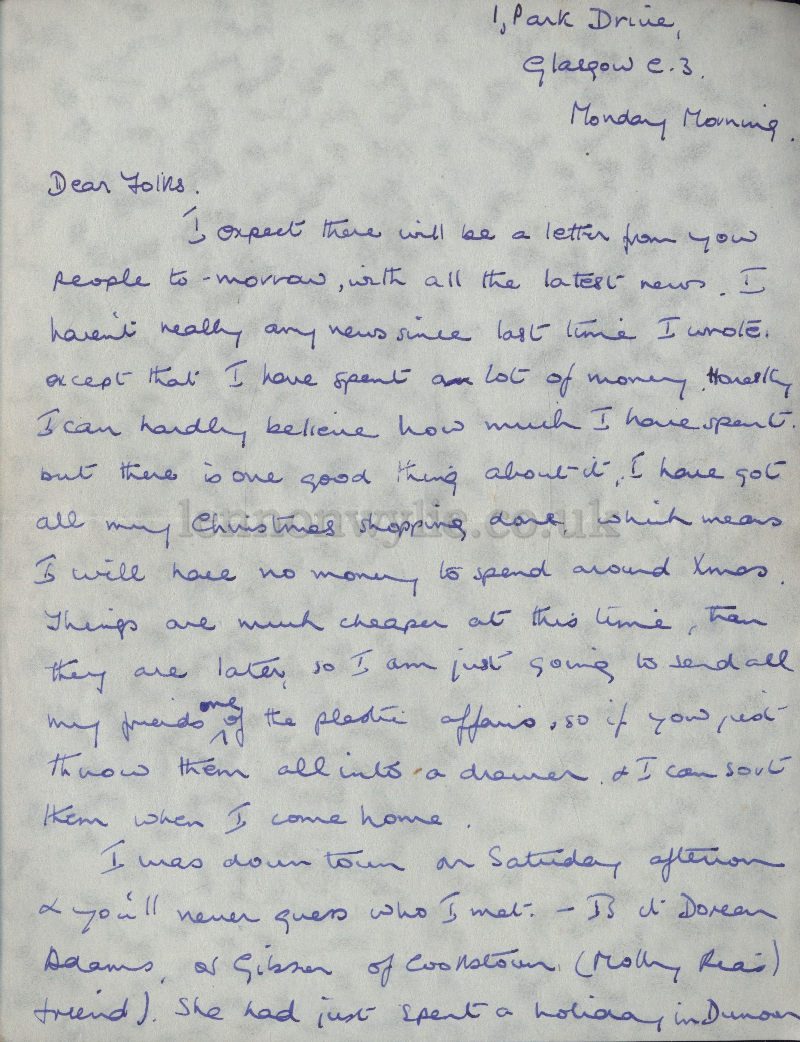 1, Park Drive,
Glasgow C.3.
Monday Morning.
Dear Folks.
I expect there will be a letter from you
people to-morrow, with all the latest news. I
haven't really any news since last time I wrote.
except that I have spent a lot of money. Honestly
I can hardly believe how much I have spent.
but there is one good thing about it, I have got
all my Christmas shopping done, which means
I will have no money to spend around Xmas.
Things are much cheaper at this time, than
they are later, so I am just going to send all
my friends one of the plastic affairs, so if you just
throw them all into a drawer. & I can sort
them when I come home.
I was down town on Saturday afternoon
& you'll never guess who I met. - Is it Doreen
Adams, or Gibson of Cookstown (Molly Rea's)
friend). She had just spent a holiday in Dunoon
lennonwylie.co.uk